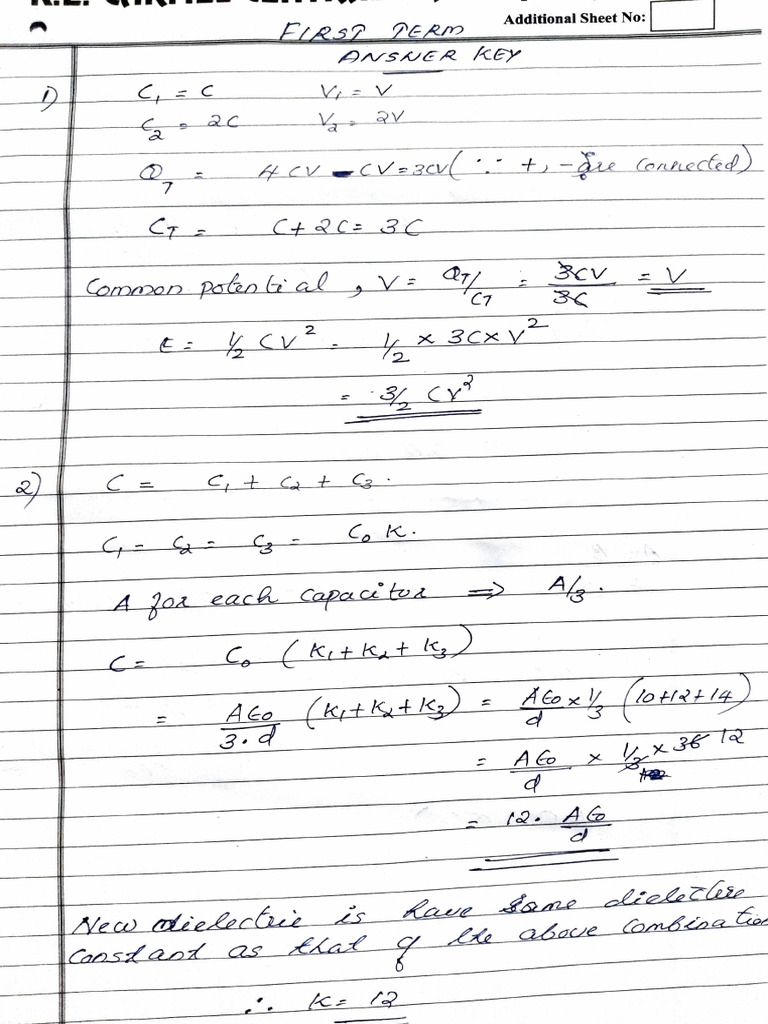 Additional Sheet No:
FIRST TERM
ANSNER KEY
1) C₁ = C V₁ = V
C₂ = 2C V₂ = 2V
Q_T = 4CV - CV = 3CV (∵ +, - are connected)
C_T = C + 2C = 3C
Common potential, V = Q_T/C_T = 3CV/3C = V
E = 1/2 CV² = 1/2 × 3C × V²
= 3/2 CV²
2) C = C₁ + C₂ + C₃.
C₁ = C₂ = C₃ = C₀ K.
A for each capacitor ⇒ A/3.
C = C₀ (K₁ + K₂ + K₃)
= Aϵ₀/3.d (K₁ + K₂ + K₃) = Aϵ₀/d × 1/3 (10+12+14)
= Aϵ₀/d × 1/3 × 36 12
= 12. Aϵ₀/d
New dielectric is have same dielectric
constant as that of the above combination
∴ K = 12